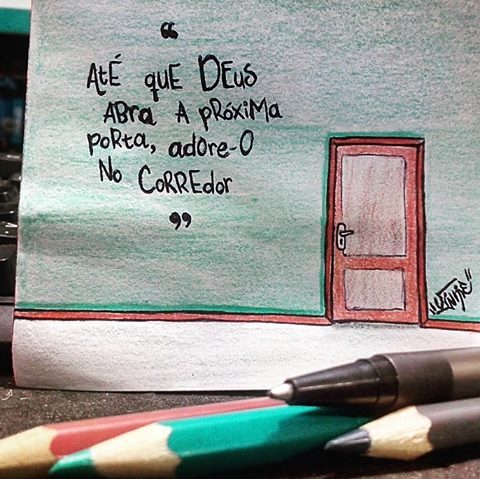 “
Até que Deus
abra a próxima
porta, adore-O
no corredor
”